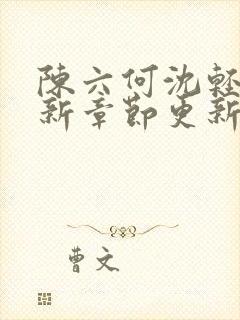 陳六何沈輕
新章節更新
曹文